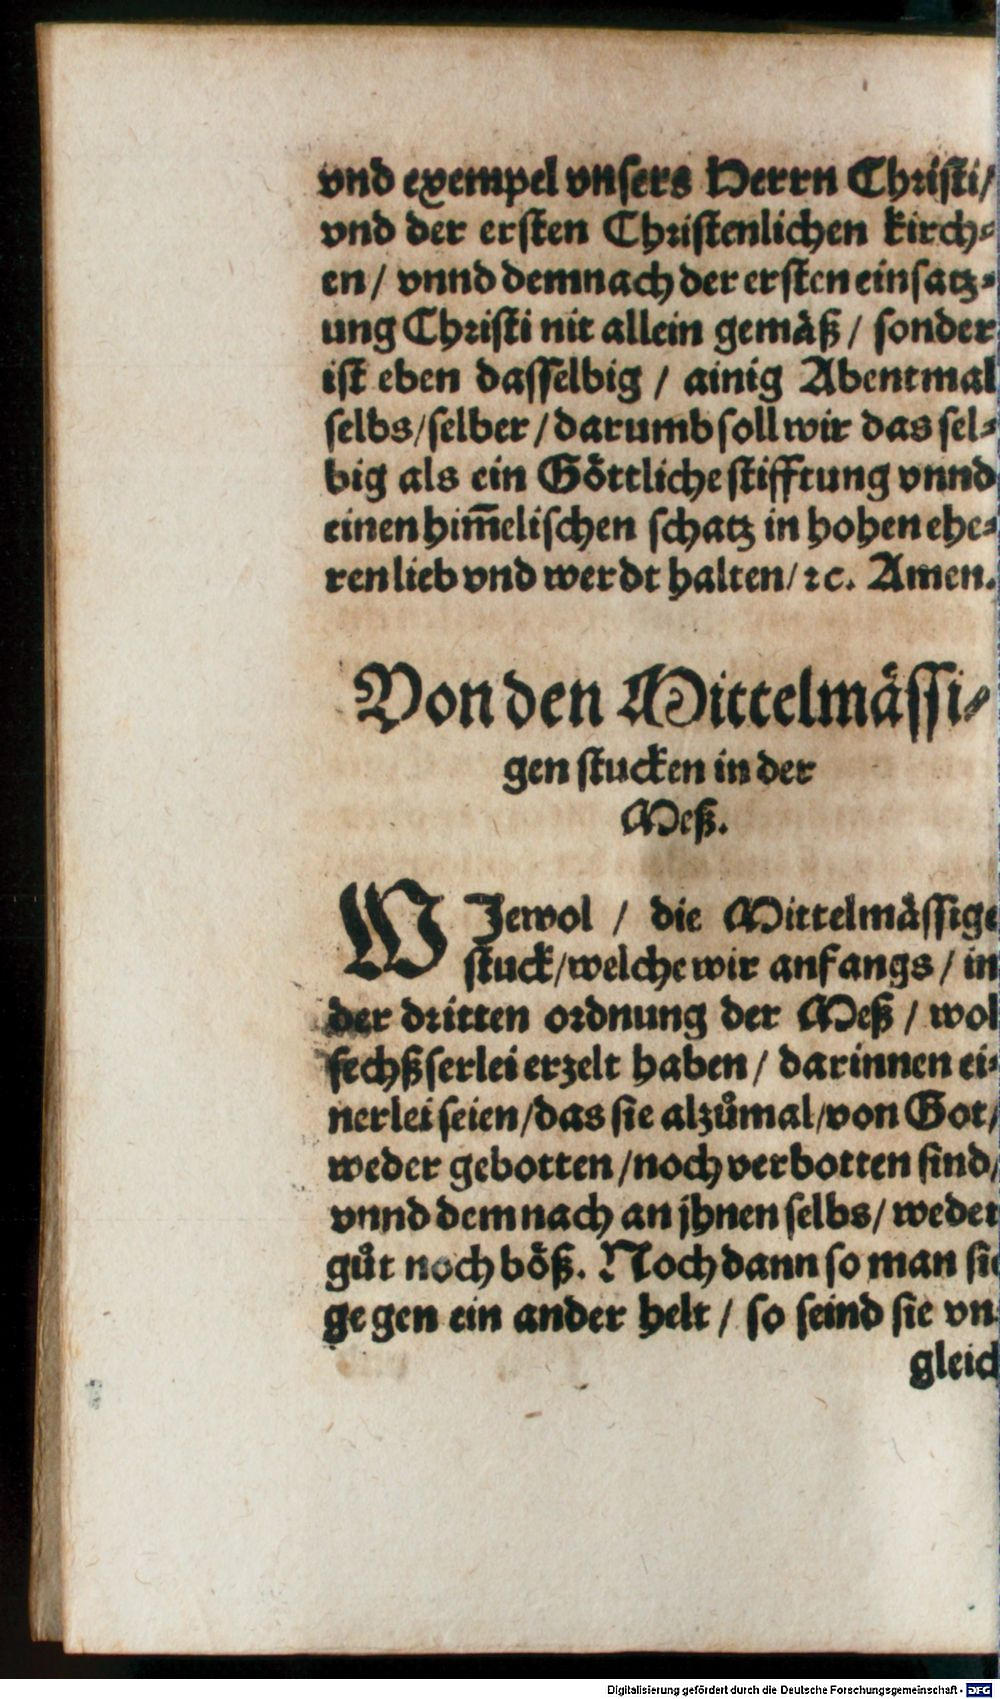 vnd exempel vnsers Herrn Christi/
vnd der ersten Christenlichen kirch⸗
en/ vnnd demnach der ersten einsatz⸗
ung Christi nit allein gemäß/ sonder
ist eben dasselbig/ ainig Abentmal
selbs/selber/darumb soll wir das sel⸗
big als ein Göttliche stifftung vnnd
einen him̄elischen schatz in hohen ehe⸗
ren lieb vnd werdt halten/ ꝛc. Amen.
Von den Mittelmässi⸗
gen stucken in der
Meß.
WJewol/ die Mittelmässige
stuck/welche wir anfangs/ in
der dritten ordnung der Meß/ wol
sechßserlei erzelt haben/ darinnen ei⸗
nerlei seien/das sie alzůmal/von Got/
weder gebotten/noch verbotten sind/
vnnd demnach an jhnen selbs/ weder
gůt noch böß. Noch dann so man sie
gegen ein ander helt/ so seind sie vn
gleich
Digitalisierung gefördert durch die Deutsche Forschungsgemeinschaft - DFG